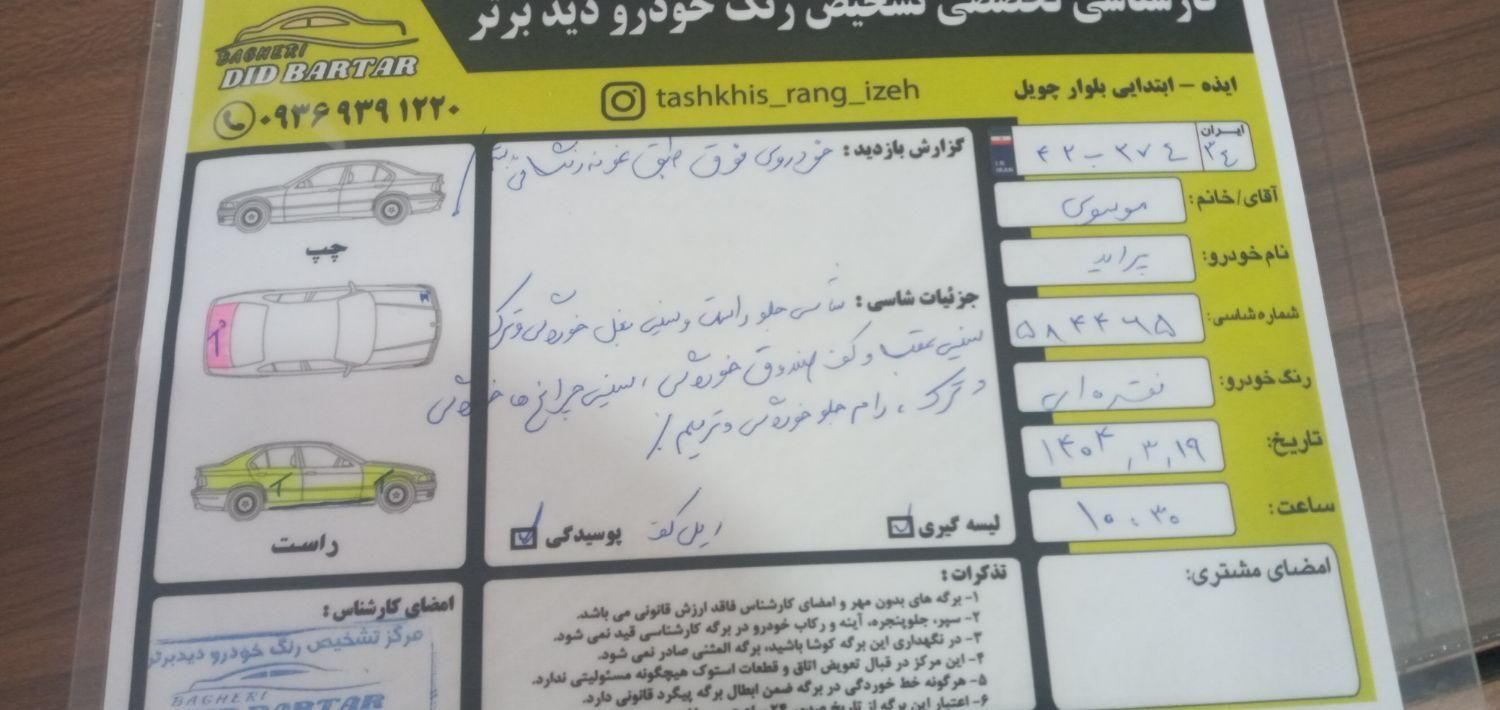 کارشناسی تخصصی تشخیص رنگ خودرو دید برتر
BAGHERI
DID BARTAR
۰۹۳۶ ۹۳۹ ۱۲۲۰
tashkhis_rang_izeh
ایذه - ابتدایی بلوار چویل
ایران ۳۴
۴۲ ب ۳۷۴
I.R. IRAN
آقای/خانم: موسوی
نام خودرو: پراید
شماره شاسی: ۵۸۴۴۶۵
رنگ خودرو: نقره ای
تاریخ: ۱۴۰۴,۳,۱۹
ساعت: ۱۰:۳۰
امضای مشتری:
گزارش بازدید: خودروی فوق طبق نمونه رنگ
جزئیات شاسی: شاسی جلو راست و سینی بغل خوردگی و ترک
سینی عقب و کف صندوق خوردگی، سینی چراغ ها خوردگی
و ترک، رام جلو خوردگی و ترمیم
لیسه گیری
پوسیدگی
چپ
راست
T
T
T
امضای کارشناس:
مرکز تشخیص رنگ خودرو دیدبرتر
BAGHERI
DID BARTAR
تذکرات:
۱- برگه های بدون مهر و امضای کارشناس فاقد ارزش قانونی می باشد.
۲- سپر، جلوپنجره، آینه و رکاب خودرو در برگه کارشناسی قید نمی شود.
۳- در نگهداری این برگه کوشا باشید، برگه المثنی صادر نمی شود.
۴- این مرکز در قبال تعویض اتاق و قطعات استوک هیچگونه مسئولیتی ندارد.
۵- هرگونه خط خوردگی در برگه ضمن ابطال برگه پیگرد قانونی دارد.
۶- اعتبار این برگه از تاریخ صدور ۲۴